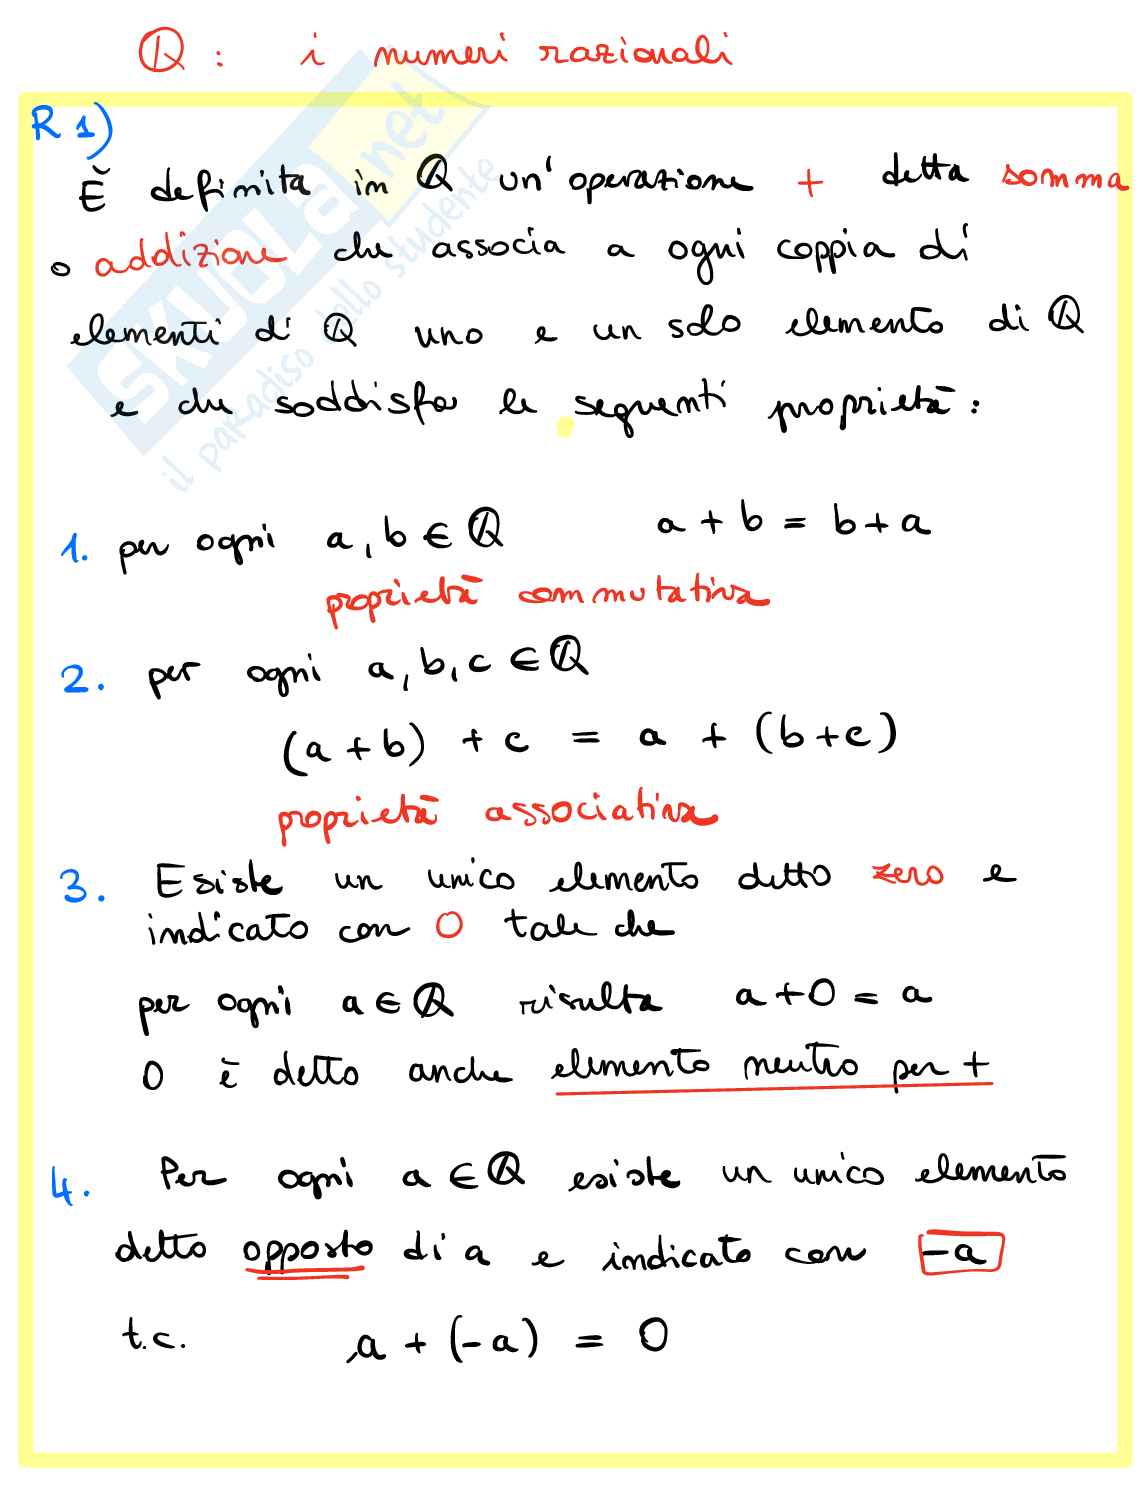 ℚ : i numeri razionali
R 1)
È definita in ℚ un'operazione + detta somma
o addizione che associa a ogni coppia di
elementi di ℚ uno e un solo elemento di ℚ
e che soddisfa le seguenti proprietà:
1. per ogni a, b ∈ ℚ a + b = b + a
proprietà commutativa
2. per ogni a, b, c ∈ ℚ
(a + b) + c = a + (b + c)
proprietà associativa
3. Esiste un unico elemento detto zero e
indicato con 0 tale che
per ogni a ∈ ℚ risulta a + 0 = a
0 è detto anche elemento neutro per +
4. Per ogni a ∈ ℚ esiste un unico elemento
detto opposto di a e indicato con -a
t.c. a + (-a) = 0
SKUOLA.net
il paradiso dello studente